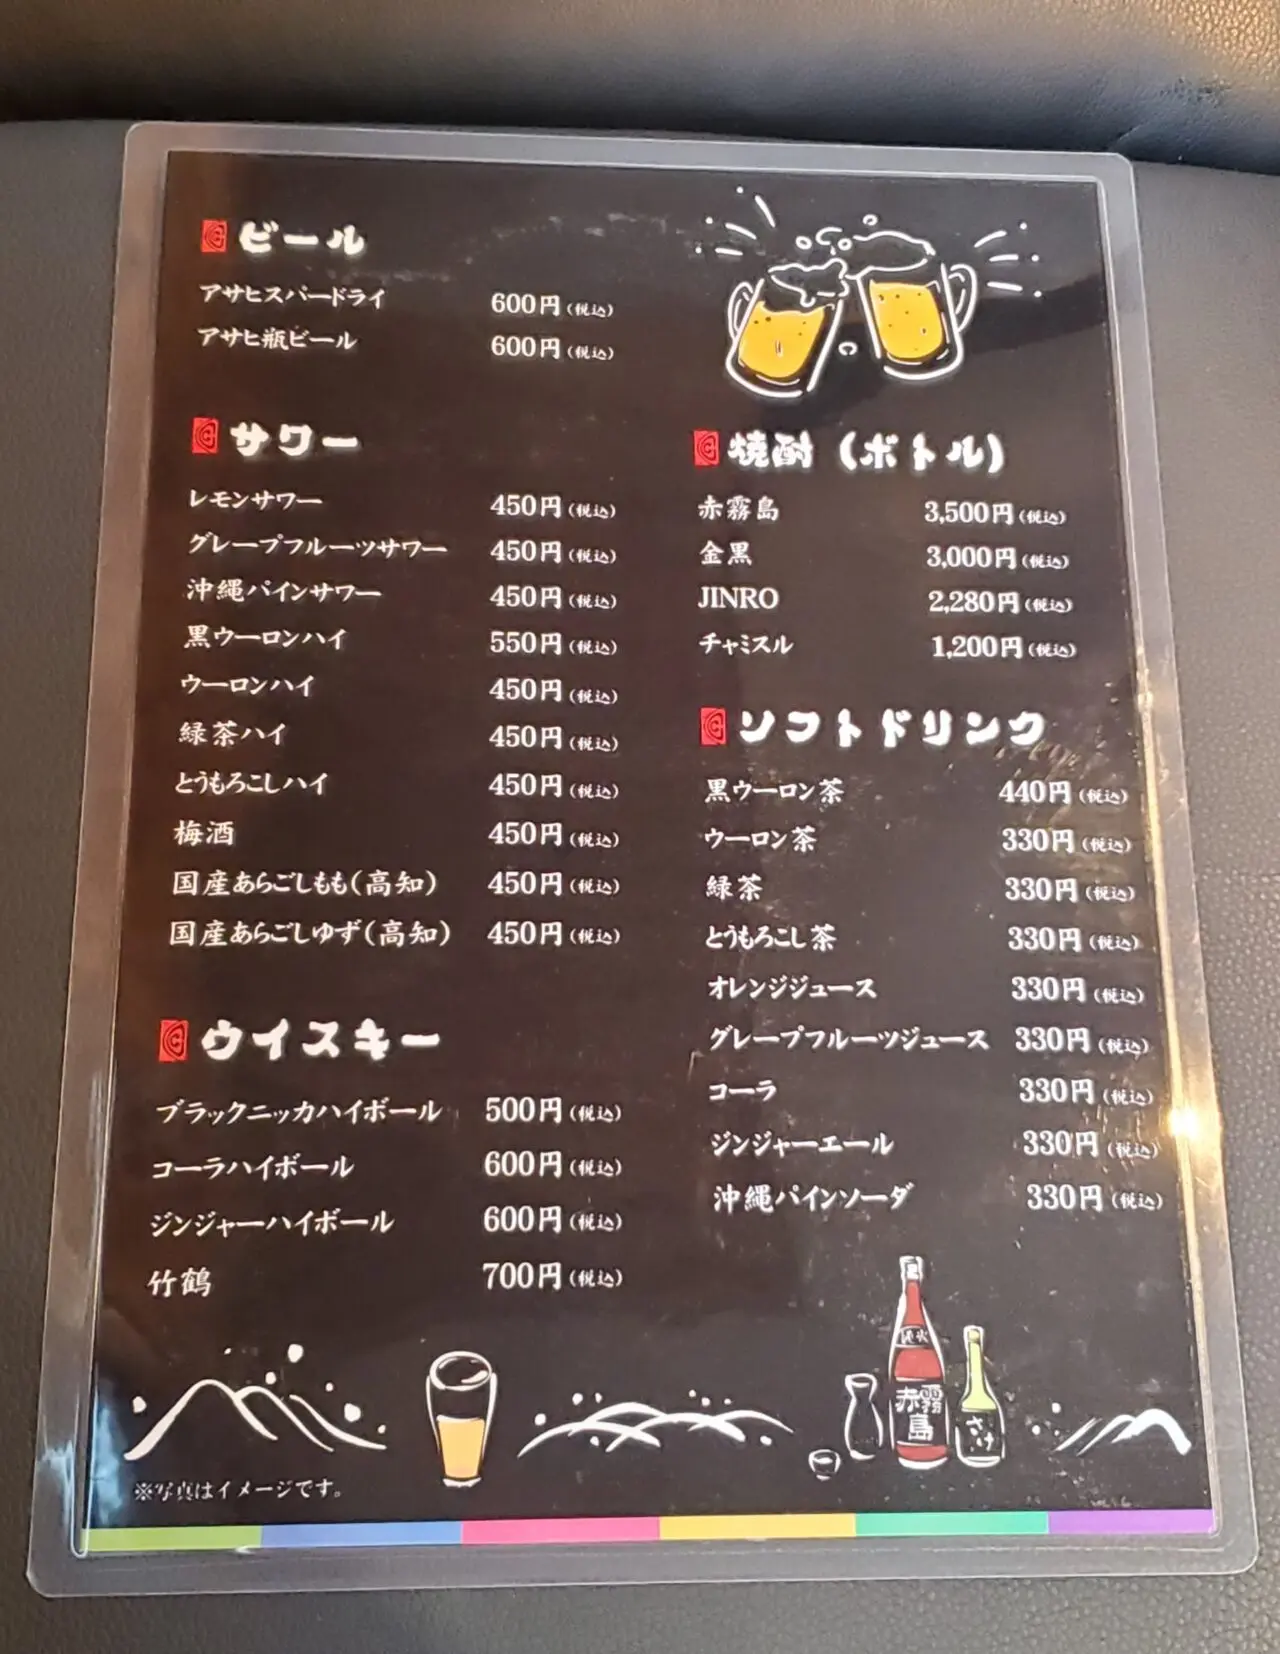 ビール
アサヒスパードライ 600円(税込)
アサヒ瓶ビール 600円(税込)
サワー
レモンサワー 450円(税込)
グレープフルーツサワー 450円(税込)
沖縄パインサワー 450円(税込)
黒ウーロンハイ 550円(税込)
ウーロンハイ 450円(税込)
緑茶ハイ 450円(税込)
とうもろこしハイ 450円(税込)
梅酒 450円(税込)
国産あらごしもも(高知) 450円(税込)
国産あらごしゆず(高知) 450円(税込)
ウイスキー
ブラックニッカハイボール 500円(税込)
コーラハイボール 600円(税込)
ジンジャーハイボール 600円(税込)
竹鶴 700円(税込)
焼酎(ボトル)
赤霧島 3,500円(税込)
金黒 3,000円(税込)
JINRO 2,280円(税込)
チャミスル 1,200円(税込)
ソフトドリンク
黒ウーロン茶 440円(税込)
ウーロン茶 330円(税込)
緑茶 330円(税込)
とうもろこし茶 330円(税込)
オレンジジュース 330円(税込)
グレープフルーツジュース 330円(税込)
コーラ 330円(税込)
ジンジャーエール 330円(税込)
沖縄パインソーダ 330円(税込)
赤霧島
さけ
※写真はイメージです。